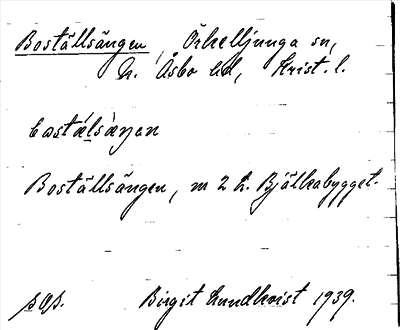 Boställsängen, Örkelljunga sn,
n. Åsbo hd, Krist. l.
bostälsàŋen
Boställsängen, m 2 h. Bjälkabygget.
Birgit Lundkvist 1939.